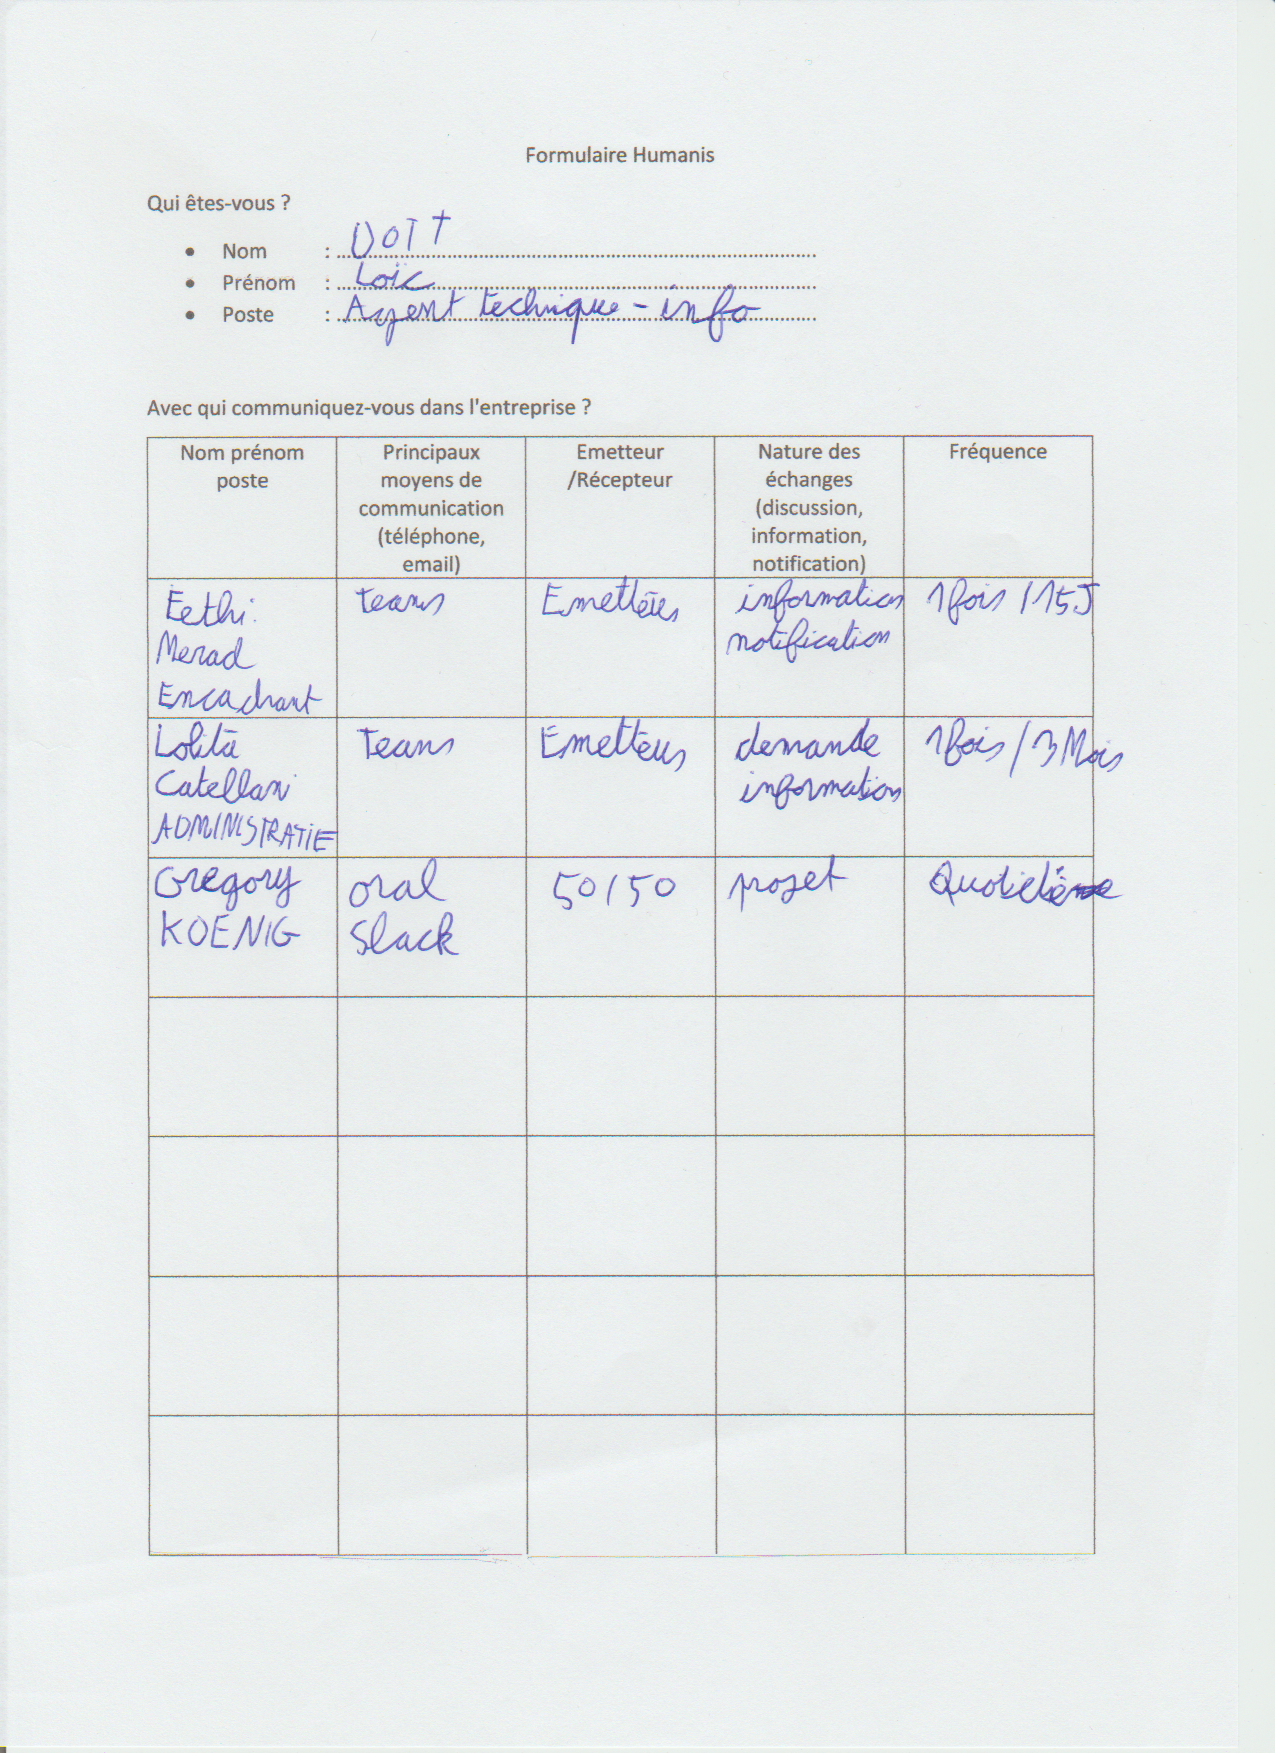 Formulaire Humanis
Qui êtes-vous ?
• Nom : Voit
• Prénom : Loïc
• Poste : Agent technique - info
Avec qui communiquez-vous dans l'entreprise ?
Nom prénom
poste
Principaux
moyens de
communication
(téléphone,
email)
Emetteur
/Récepteur
Nature des
échanges
(discussion,
information,
notification)
Fréquence
Fethi
Merad
Encadrant
teams
Emetteur
information
notification
1 fois / 15J
Lolita
Catellani
ADMINISTRATIF
Teams
Emetteur
demande
information
1 fois / 3 Mois
Gregory
KOENIG
oral
Slack
50/50
projet